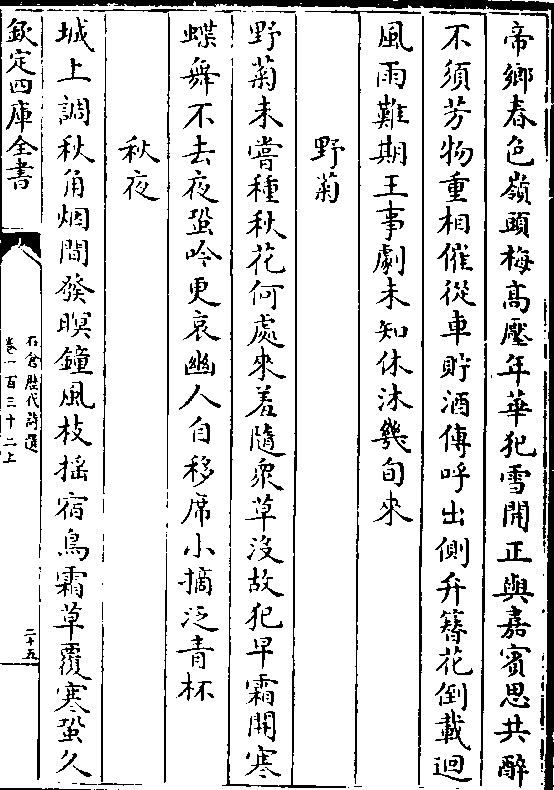 帝鄉春色嶺頭梅高壓年華犯雪開正與嘉賓思共醉
不須芳物重相催從車貯酒傳呼出側弁簪花倒載迴
風雨難期王事劇未知休沐幾旬來
野菊
野菊未嘗種秋花何處來羞隨衆草沒故犯早霜開寒
蝶舞不去夜蛩吟更哀幽人自移席小摘泛青杯
秋夜
城上調秋角烟間發暝鐘風枝揺宿鳥霜草覆寒蛩久
欽定四庫全書
石倉歴代詩選
卷一百三十二上
二十五